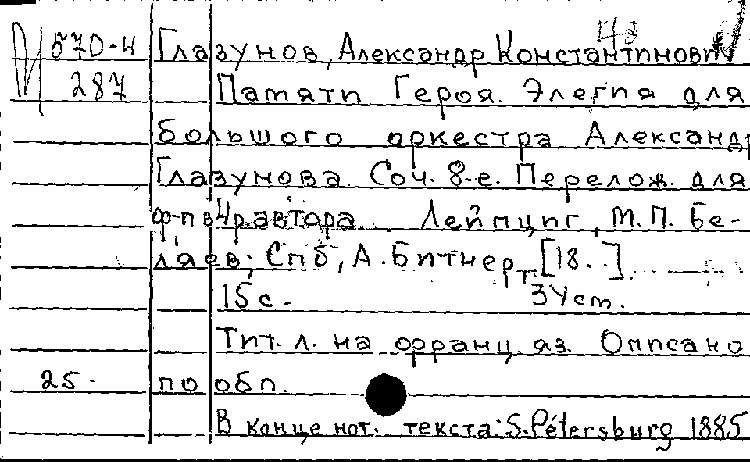 570-4 Глазунов, Александр Константинович
287 Памяти Героя. Элегия для
большого оркестра Александр
Глазунова. Соч. 8-е. Перелож. для
ф-п в 4 р автора. Лейпциг, М.П. Бе-
ляев; Спб, А. Битнер, [18..].
15 с. 34 cm.
Тит. л. на франц. яз. Описано
25. по обл.
В конце нот. текста: S. Pétersburg 1885